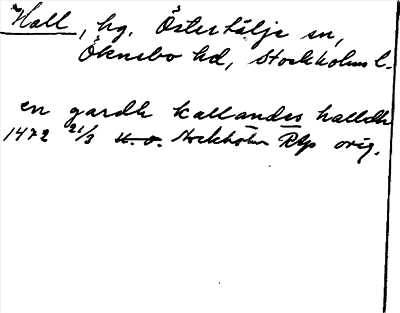 Hall, hg, Östertälje sn,
Öknebo hd, Stockholms l.
en gardh kallandes halldh
1472 21/3 u. o. Stockholm RAp orig.